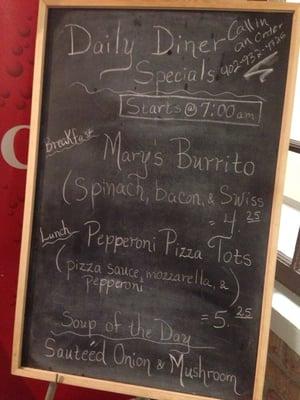 Daily Diner
Call in
an Order
402-932-4725
Specials
Starts @ 7:00 am
Breakfast
Mary's Burrito
(Spinach, bacon, & Swiss
= 4.25
Lunch
Pepperoni Pizza Tots
(pizza sauce, mozzarella, &
pepperoni)
= 5.25
Soup of the Day
Sauteéd Onion & Mushroom